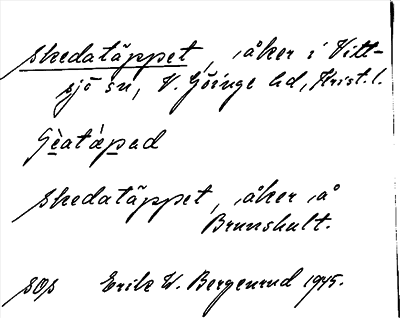 Skedatäppet, åker i Vitt-
sjö sn, V. Göinge hd, Krist. l.
Skedatäppet, åker å
Brunshult.
SOs Erik W. Bergenrud 1945.